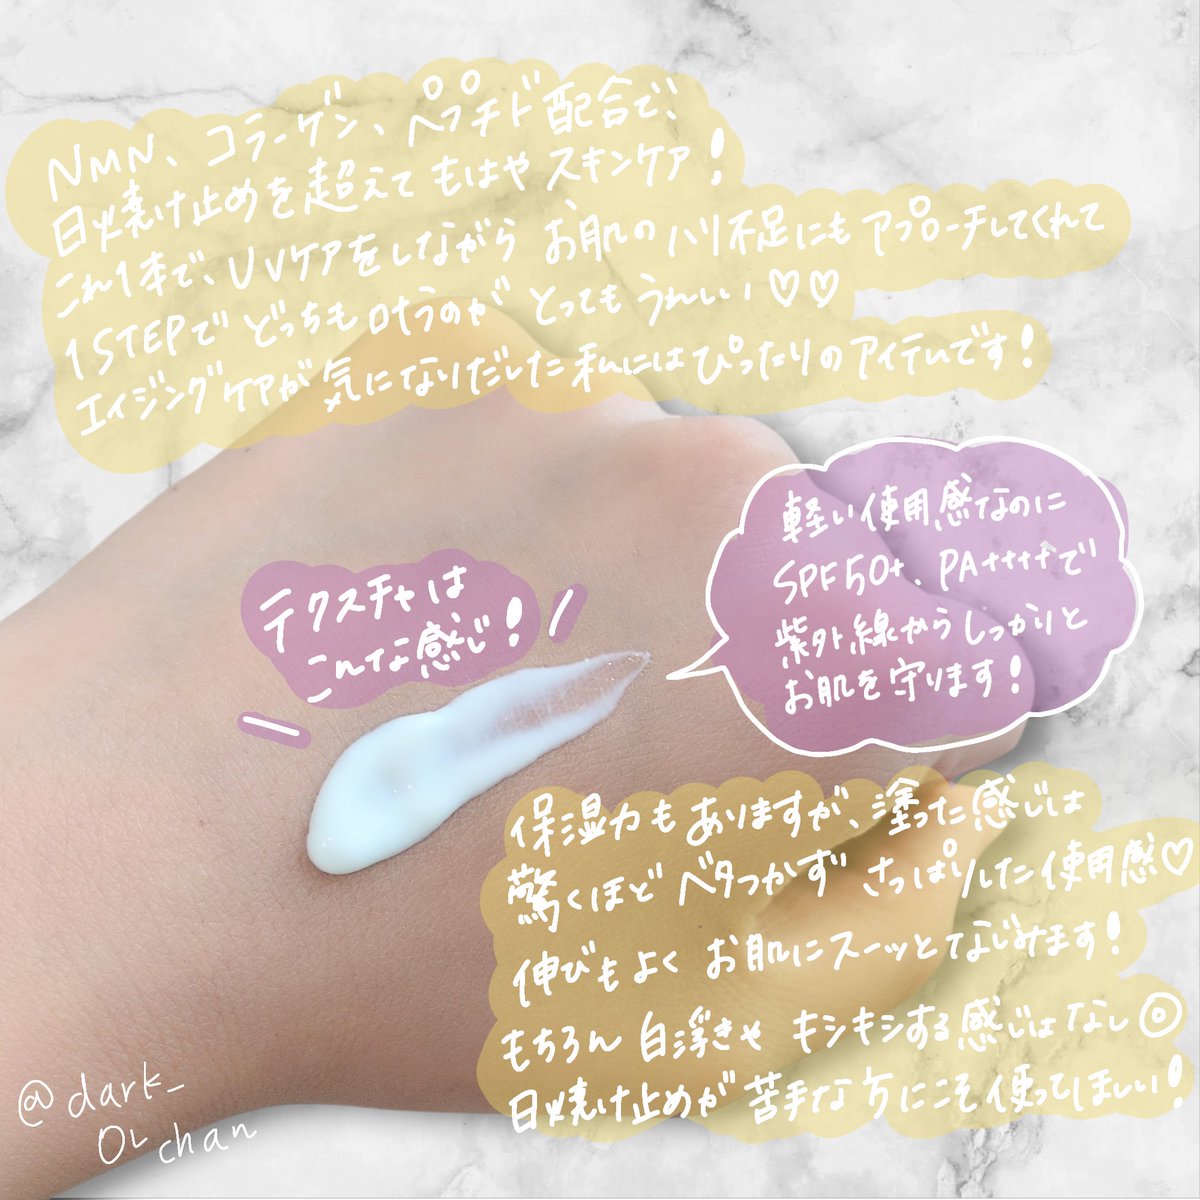 NMN、コラーゲン、ペプチド配合で、
日焼け止めを超えてもはやスキンケア！
これ1本で、UVケアをしながらお肌のハリ不足にもアプローチしてくれて
1STEPでどっちも叶うのがとってもうれしい♡♡
エイジングケアが気になりだした私にはぴったりのアイテムです！
軽い使用感なのに
SPF50+、PA++++で
紫外線からしっかりと
お肌を守ります！
テクスチャは
こんな感じ！
保湿力もありますが、塗った感じは
驚くほどベタつかずさっぱりした使用感♡
伸びもよくお肌にスーッとなじみます！
もちろん白浮きやキシキシする感じはなし◎
日焼け止めが苦手な方にこそ使ってほしい！
@dark_
OL
chan